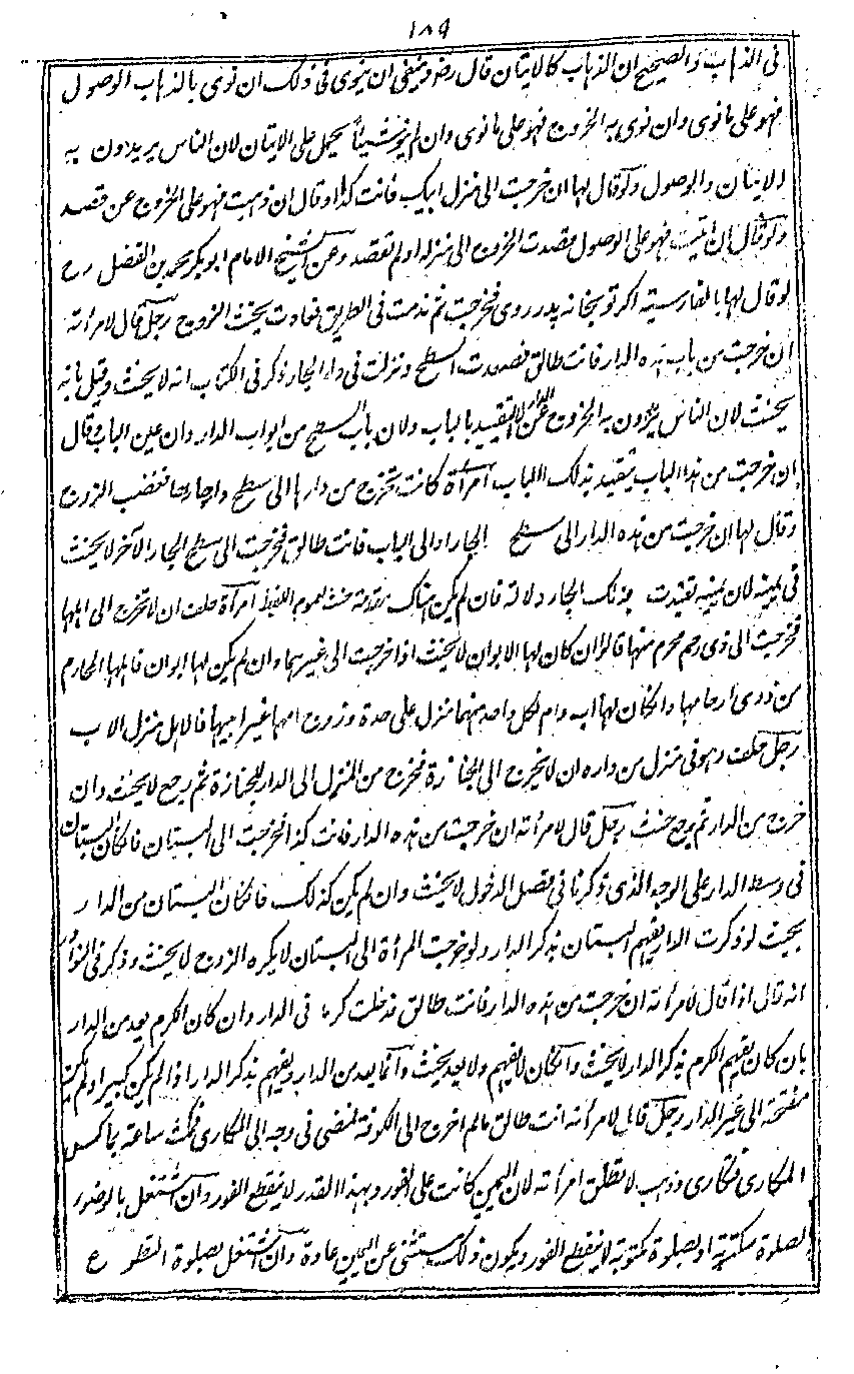 ١٨٩
فى الذهاب والصحيح ان الذهاب كالاتيان قال رضو ينبغى ان ينوى فى ذلك ان نوى بالذهاب الوصول
فهو على ما نوى وان نوى به الخروج فهو على ما نوى وان لم ينو شيئا يحمل على الاتيان لان الناس يريدون به
الاتيان والوصول ولو قال لها ان خرجت الى منزل ابيك فانت كذا وقال ان ذهبت فهو على الخروج عن قصد
ولو قال ان اتيت فهو على الوصول قصدت الخروج الى منزله او لم تقصد وعن الشيخ الامام ابو بكر محمد بن الفضل رح
لو قال لها بالفارسية اكر تو بخانه پدر روى فخرجت ثم ندمت فى الطريق فعادت يحنث الزوج رجل قال لامرأته
ان خرجت من باب هذه الدار فانت طالق فصعدت السطح ونزلت فى دار الجار ذكر فى الكتاب انه لا يحنث وقيل بانه
يحنث لان الناس يريدون به الخروج عن الدار لا التقييد بالباب ولان باب السطح من ابواب الدار وان عين الباب وقال
ان خرجت من هذا الباب يتقيد بذلك الباب امرأة كانت تخرج من دارها الى سطح جارها فغضب الزوج
وقال لها ان خرجت من هذه الدار الى سطح الجار او الى الباب فانت طالق فخرجت الى سطح الجار الآخر لا يحنث
فى يمينه لان يمينه تقيدت بذلك الجار دلالة فان لم يكن هناك مقدمة حنث لعموم اللفظ امرأة حلف ان لا تخرج الى اهلها
فخرجت الى ذى رحم محرم منها قالوا ان كان لها الابوان لا يحنث اذا خرجت الى غيرهما وان لم يكن لها ابوان فاهلها المحارم
من ذوى أرحامها وان كان لها اب وام لكل واحد منهما منزل على حدة وزوج امها غير ابيها فالاهل منزل الاب
رجل حلف وهو فى منزل من داره ان لا يخرج الى الجنازة فخرج من المنزل الى الدار للجنازة ثم رجع لا يحنث وان
خرج من الدار ثم رجع حنث رجل قال لامرأته ان خرجت من هذه الدار فانت كذا فخرجت الى البستان فان كان البستان
فى وسط الدار على الوجه الذى ذكرنا فى فصل الدخول لا يحنث وان لم يكن كذلك فان كان البستان من الدار
بحيث لو ذكرت الدار يفهم البستان بذكر الدار ولو خرجت المرأة الى البستان لا يكره الزوج لا يحنث وذكر فى النوادر
انه قال اذا قال لامرأته ان خرجت من هذه الدار فانت طالق فدخلت كرما فى الدار وان كان الكرم يعد من الدار
بان كان يفهم الكرم بذكر الدار لا يحنث وان كان لا يفهم ولا يعد يحنث وانما يعد من الدار ويفهم بذكر الدار اذا لم يكن كبيرا ولم يكن
مفتحه الى غير الدار رجل قال لامرأته انت طالق ما لم اخرج الى الكوفة فمضى فى وجه الى المكارى فمكث ساعة يماكس
المكارى فتكارى وذهب لا تطلق امرأته لان اليمين كانت على الفور وبهذا القدر لا ينقطع الفور وان اشتغل بالوضوء
لصلوة مكتوبة او بصلوة مكتوبة لا ينقطع الفور ويكون ذلك مستثنى عن اليمين عادة وان اشتغل بصلوة التطوع